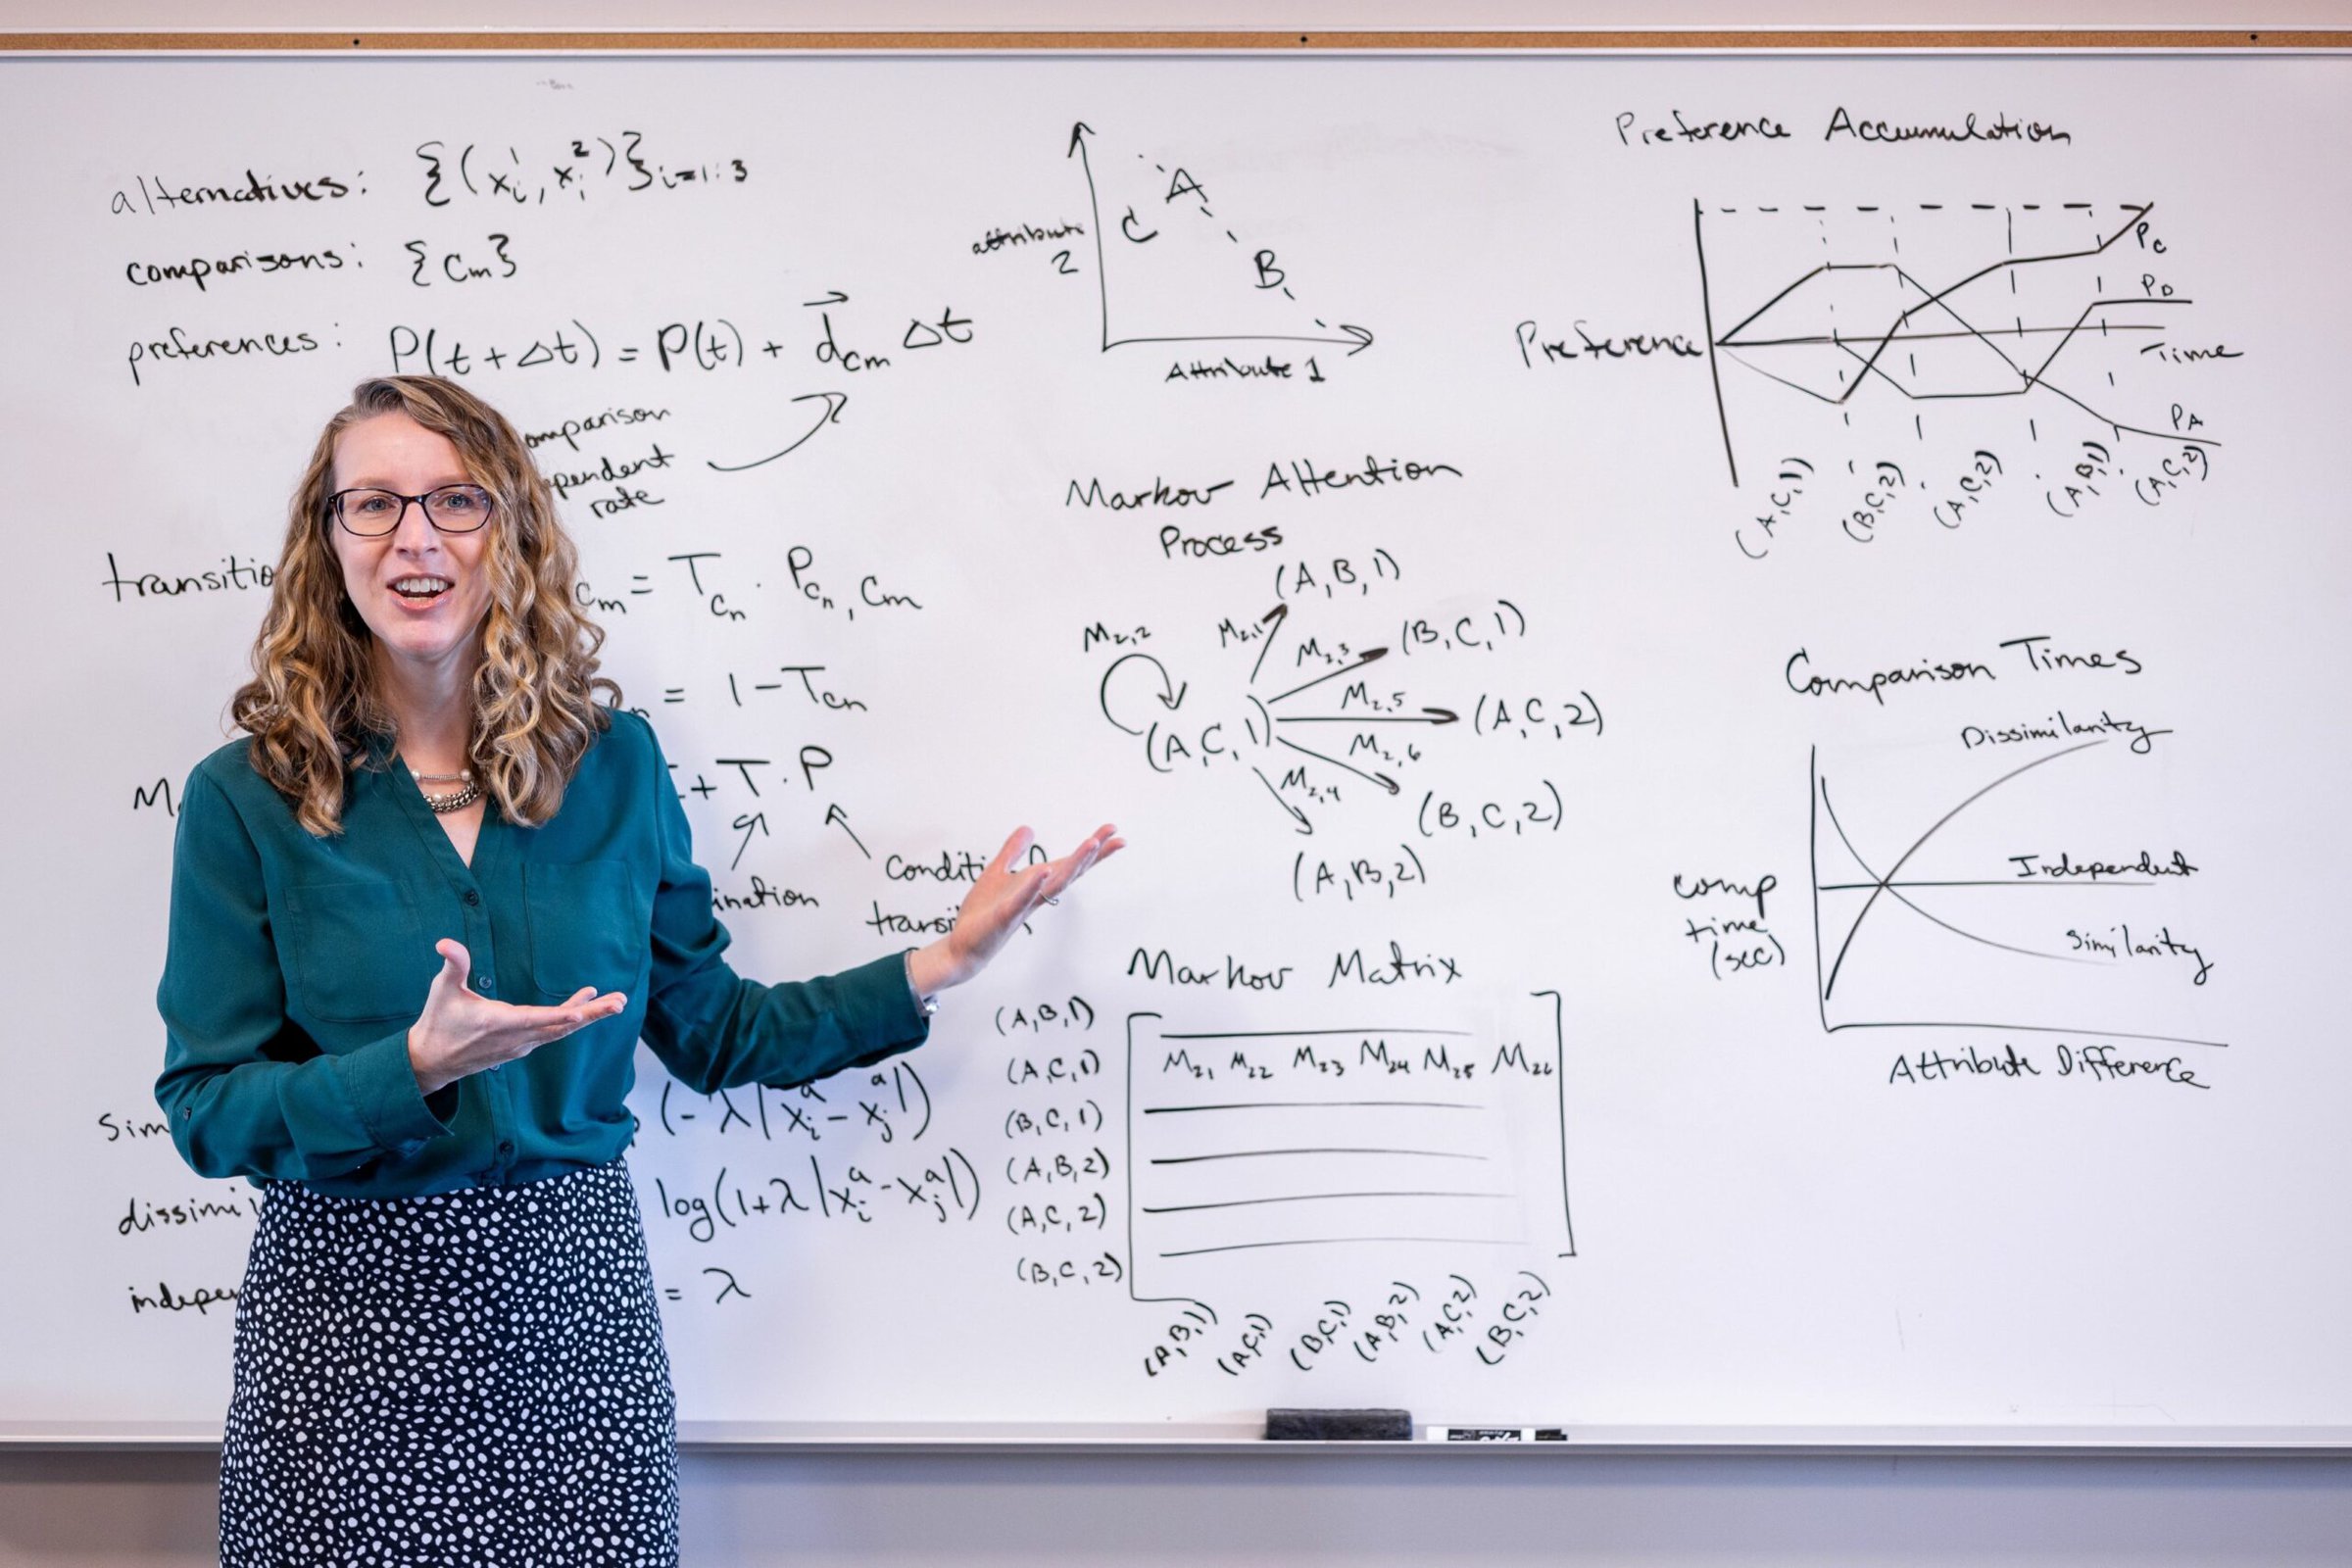 alternatives: {(x_i^1, x_i^2)}_{i=1:3}
comparisons: {C_m}
preferences: P(t + Δt) = P(t) + d⃗_{cm} Δt
omparison
pendent
rate
transitio
C_m = T_{C_n} · P_{C_n, C_m}
n = 1 - T_{cn}
M
+ T · P
ination
Conditi
transi
Sim
(- λ |x_i^a - x_j^a|)
dissimi
log(1+λ |x_i^a - x_j^a|)
indepen
= λ
attribute
2
C
A
B
Attribute 1
Markov Attention
Process
(A, B, 1)
M_{2,2}
M_{2,1}
M_{2,3}
(B, C, 1)
M_{2,5}
(A, C, 1)
(A, C, 2)
M_{2,6}
M_{2,4}
(B, C, 2)
(A, B, 2)
Markov Matrix
(A, B, 1)
(A, C, 1) M_{21} M_{22} M_{23} M_{24} M_{25} M_{26}
(B, C, 1)
(A, B, 2)
(A, C, 2)
(B, C, 2)
(A, B, 1) (A, C, 1) (B, C, 1) (A, B, 2) (A, C, 2) (B, C, 2)
Preference Accumulation
P_C
P_D
Preference
Time
P_A
(A, C, 1) (B, C, 2) (A, C, 2) (A, B, 1) (A, C, 2)
Comparison Times
Dissimilarity
Independent
comp
time
(sec)
Similarity
Attribute Difference